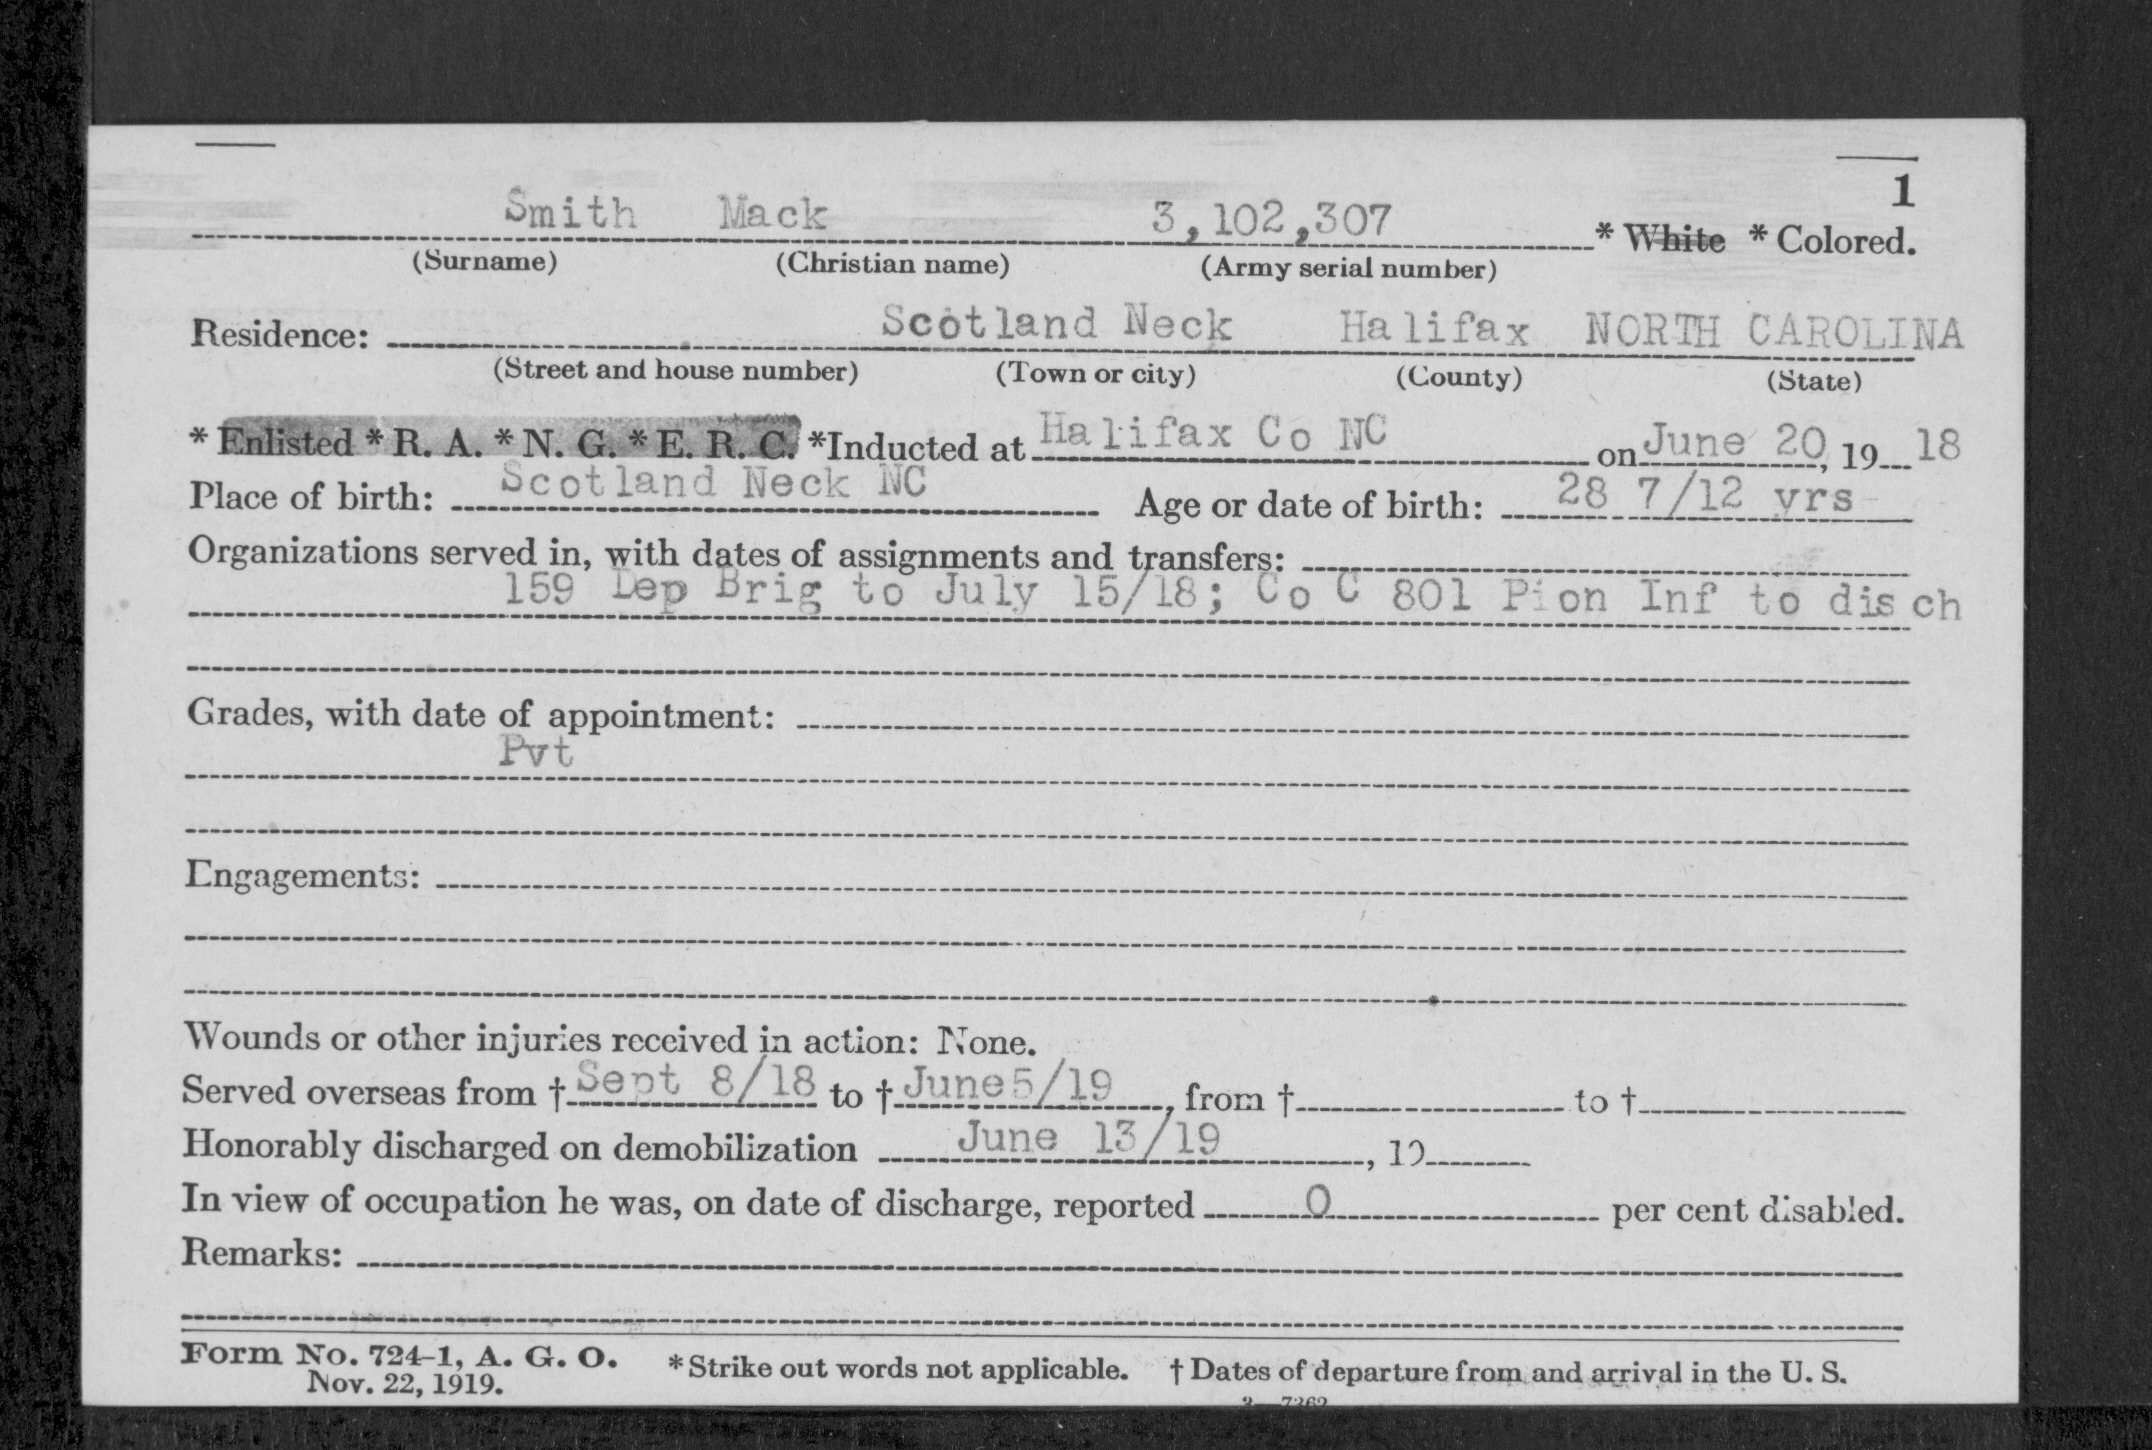 1
Smith Mack 3,102,307 * White * Colored.
(Surname) (Christian name) (Army serial number)
Residence: Scotland Neck Halifax NORTH CAROLINA
(Street and house number) (Town or city) (County) (State)
* Enlisted * R. A. * N. G. * E. R. C. *Inducted at Halifax Co NC on June 20, 19 18
Place of birth: Scotland Neck NC Age or date of birth: 28 7/12 yrs
Organizations served in, with dates of assignments and transfers:
159 Dep Brig to July 15/18; Co C 801 Pion Inf to disch
Grades, with date of appointment:
Pvt
Engagements:
Wounds or other injuries received in action: None.
Served overseas from † Sept 8/18 to † June 5/19, from † to †
Honorably discharged on demobilization June 13/19, 19
In view of occupation he was, on date of discharge, reported 0 per cent disabled.
Remarks:
Form No. 724-1, A. G. O. * Strike out words not applicable. † Dates of departure from and arrival in the U. S.
Nov. 22, 1919.